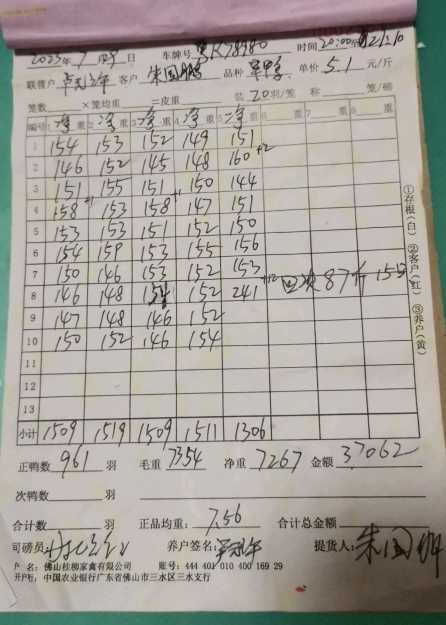 2023年7月 日 车牌号 粤R78980 时间 20:00 21:10
联营户 客户 朱国鹏 品种 单价 5.1 元/斤
笼数 ×笼均重 =皮重 装 20羽/笼 称 笼/秤
编号 1净重 2净重 3净重 4净重 5净重 6 重 7 重 8 重 9 重
1 154 153 152 149 151
2 146 152 145 148 160 +2
3 151 155 151 +1 150 144
4 158 +1 153 158 147 151
5 153 153 151 152 150
6 154 159 153 155 156
7 150 146 153 152 153
8 146 148 154 152 241 +12 回次 87斤
9 147 148 146 152
10 150 152 146 154
11
12
13
小计 1509 1519 1509 1511 1306
正鸭数 961 羽 毛重 7354 净重 7267 金额 37062
次鸭数 羽
合计数 羽 正品均重: 7.56 合计总金额
司磅员: 养户签名: 提货人: 朱国鹏
户 名: 佛山桂柳家禽有限公司 账号: 444 401 010 400 169 29
开户行: 中国农业银行广东省佛山市三水区三水支行
①存根(白) ②客户(红) ③养户(黄)